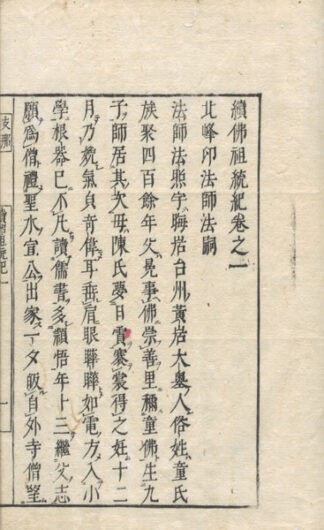 續佛祖統紀卷之一
北峰印法師法嗣
法師法照字晦岩台州黃岩大墓人俗姓童氏
族聚四百餘年父晃事佛崇善里稱童佛生九
子師居其次母陳氏夢日賁寢裳得之妊十二
月乃娩氣貌奇偉耳垂眉眼聯瞱如電方入小
學根器已不凡讀儒書多穎悟年十三繼父志
願爲僧禮聖水宜公出家一夕飯自外寺僧望
支那
續佛祖統紀
一